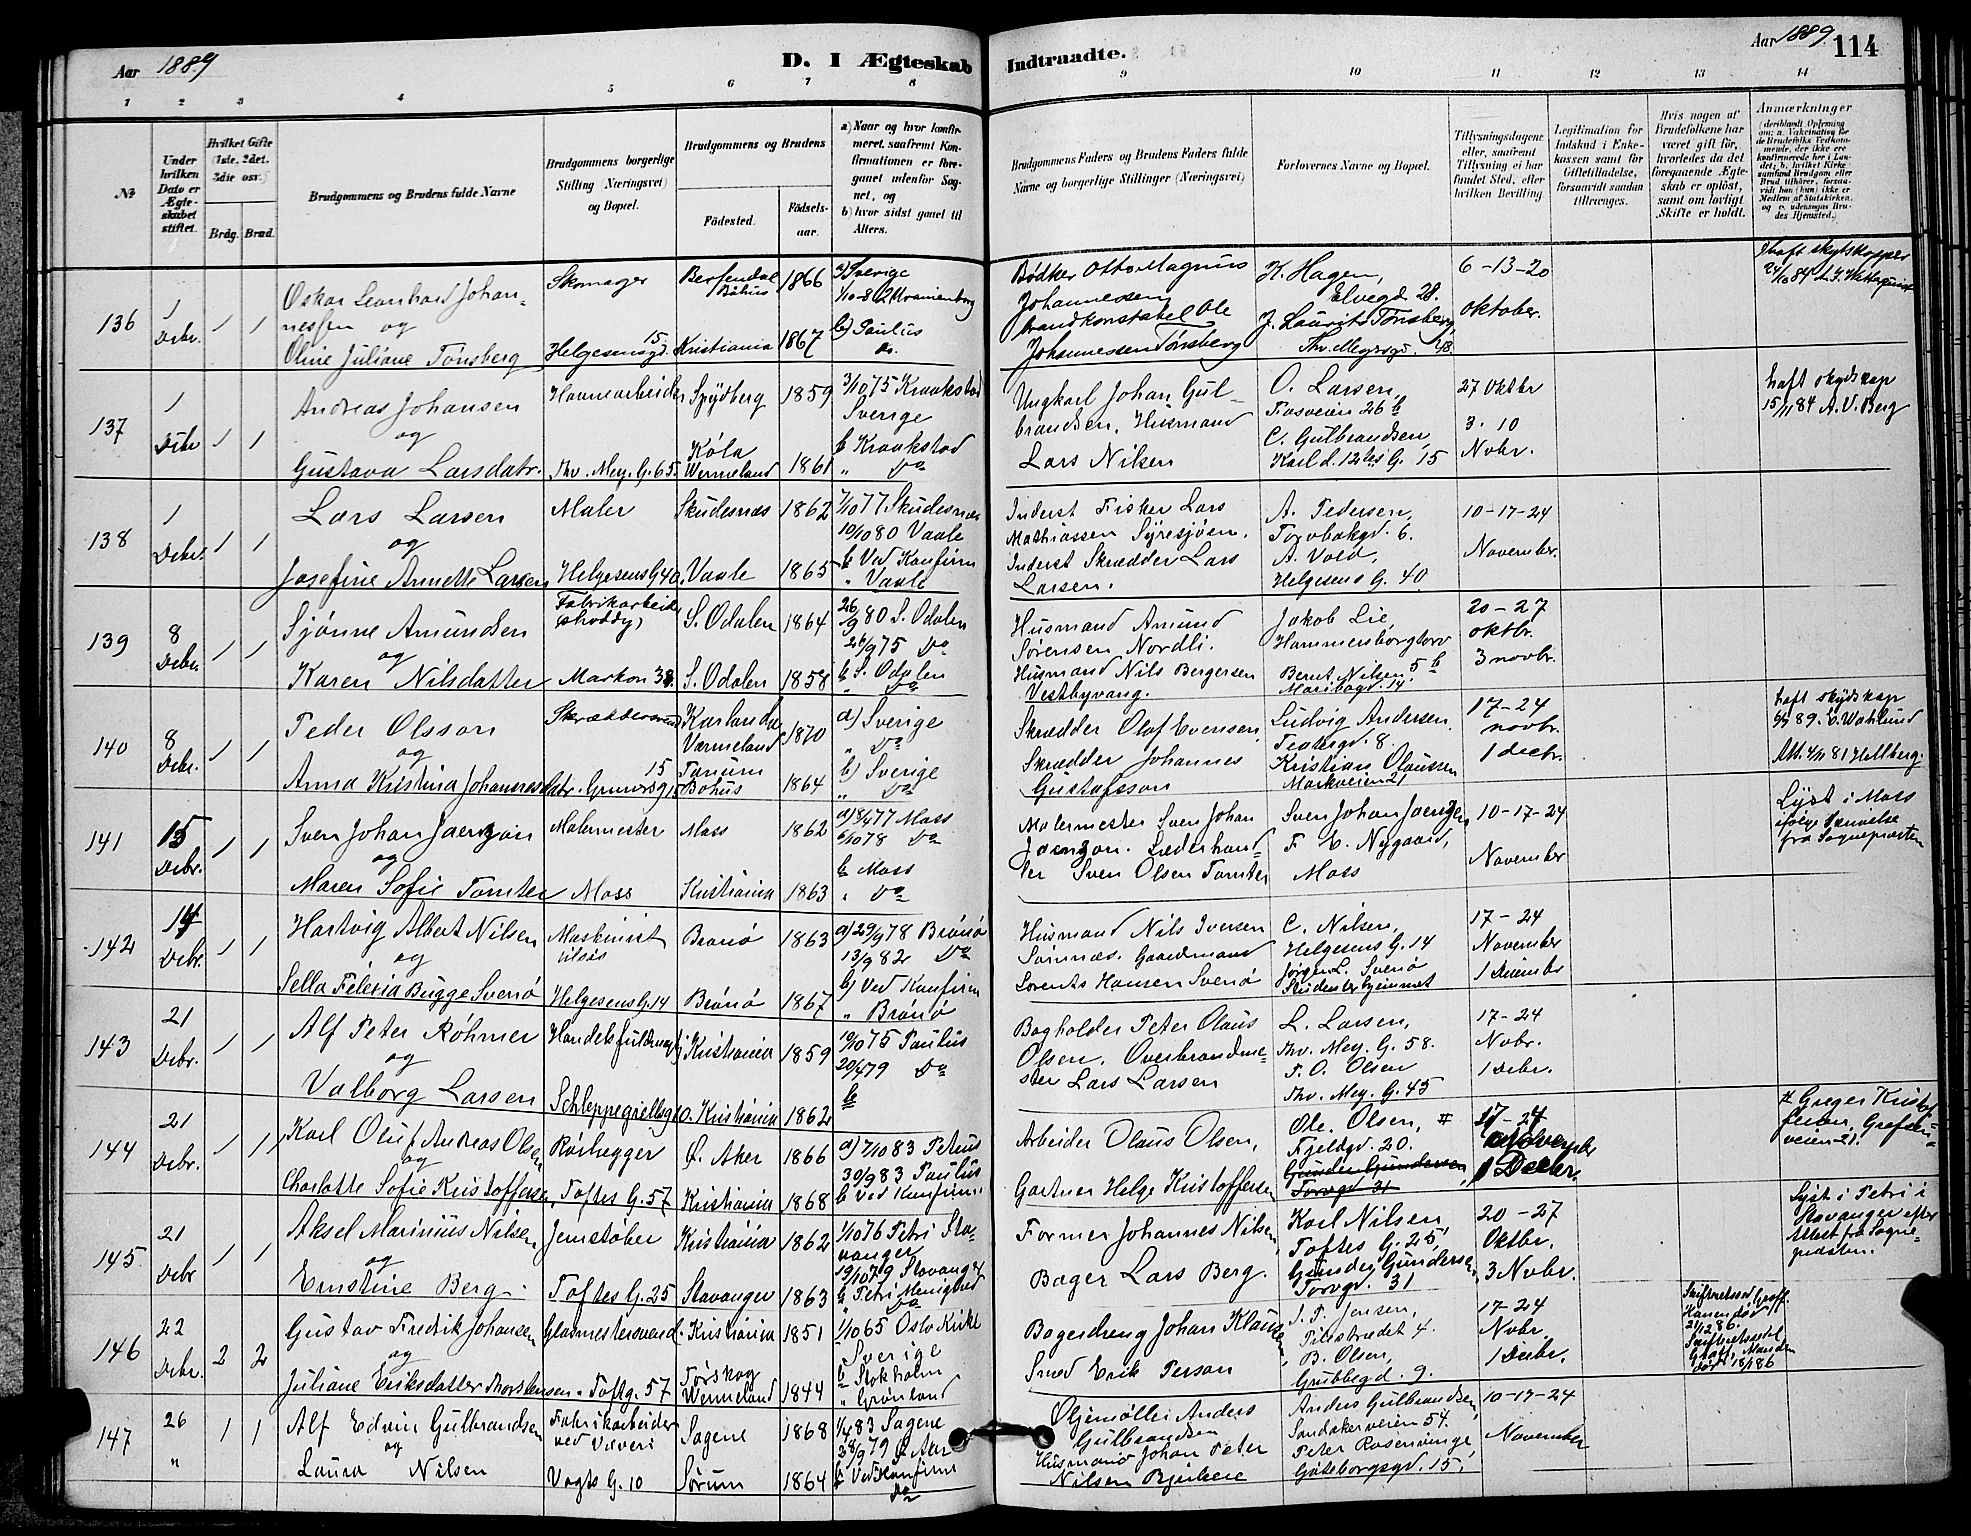 Aar 1889
D. I Ægteskab
Indtraadte.
Aar 1889
114
1 2 3 4 5 6 7 8 9 10 11 12 13 14
№
Under hvilken Dato er Ægteskabet stiftet.
Hvilket Gifte (1ste, 2det, 3die osv.)
Brdg. Brud.
Brudgommens og Brudens fulde Navne
Brudgommens borgerlige Stilling (Næringsvei) og Bopæl.
Brudgommens og Brudens
Fødested.
Fødselsaar.
a) Naar og hvor konfirmeret, saafremt Konfirmationen er foregaaet udenfor Sognet, og
b) hvor sidst gaaet til Alters.
Brudgommens Faders og Brudens Faders fulde Navne og borgerlige Stillinger (Næringsvei)
Forlovernes Navne og Bopæl.
Tillysningsdagene eller, saafremt Tillysning ei har fundet Sted, efter hvilken Bevilling
Legitimation for Indskud i Enkekassen samt for Giftetilladelse, forsaavidt saadan tiltrænges.
Hvis nogen af Brudefolkene har været gift før, hvorledes da det foregaaende Ægteskab er opløst, samt om lovligt Skifte er holdt.
Anmærkninger
136 1 Debr. 1 1
Oskar Leonhard Johannessen og
Oline Juliane Tønsberg
Skomager
Helgesensgd. 15
Bersendal Båhus 1866
Kristiania 1867
a) Sverige
b) Paulus
Do.
Bødker Otto Magnus Johannessen
brandkonstabel Ole Johannessen Tønsberg
K. Hagen, Elvegd 28.
J. Laurits Tønsberg,
Thv. Meyersgd. 38.
6-13-20 oktober.
137 1 Debr 1 1
Andreas Johansen
og
Gustava Larsdatr.
Havnearbeider
Thv. Mey. G. 65.
Spydberg 1859
Køla Wermeland 1861
3/10 75 Kraakstad
Sverige
b Kraakstad
" Do
Ungkarl Johan Gulbrandsen, Husmand
Lars Nilsen
O. Larsen,
Fosveien 26 b
C. Gulbrandsen,
Karl d. 12tes G. 15
27 Oktbr
3. 10
Nobr.
haft skydskop
15/11 84 A. V. Berg
138 1 Debr. 1 1
Lars Larsen
og
Josefine Annette Larsen
Maler
Helgesens G 40.
Skudesnæs 1862
Vaale 1865
7/10 77 Skudesnæs
10/10 80 Vaale
b Ved Konfirm
" Vaale
Inderst Fisker Lars
Mathiassen Syresjøen.
Inderst Skrædder Lars
Larsen.
A. Pedersen,
Torvbakgd. 6.
A. Vold,
Helgesens G. 40
10-17-24
November.
139 8 Debr 1 1
Sjønne Amundsen
og
Karen Nilsdatter
Fabrikarbeider (shoddy)
Markvn 38.
S. Odalen 1864
S. Odalen 1858
26/9 80 S. Odalen
26/9 75 Do
b S. Odalen
" Do
Husmand Amund
Sørensen Nordli.
Husmand Nils Bergersen
Vestbyvang.
Jakob Lie,
Hammersborgtorv 5 b
Bernt Nilsen
Maribogd. 14.
20-27
oktbr.
3 novbr.
140 8 Debr. 1 1
Peder Olsson
og
Anna Kristina Johannesdatr.
Skræddersvend
Karlanda Værmeland 1870
Tanum Bohus 1864
a) Sverige
" Do
b) Sverige
" Do
Skrædder Olof Evensen
Skrædder Johannes
Gustafsson
Ludvig Andersen
Kristian Olaussen
Markveien 21
17-24
novbr.
1 decbr.
haft skydskop
141 15 Debr. 1 1
Sven Johan Jaenzon
og
Maren Sofie Tomter
Malermester
Moss
Moss 1862
Kristiania 1863
Moss
6/10 78 Do
b Moss
" Do
Malermester Sven Johan
Jaenzon. Læderhandler Sven Olsen Tomter
Sven Johan Jaenzon,
F. E. Nygaard,
Moss
10-17-24
November
Lyst i Moss
ifølge Skrivelse
fra Sognepræsten
142 14 Debr. 1 1
Hartvig Albert Nilsen
og
Sella Felexia Bugge Svenø
Maskinist
Helgesens G. 14
Brønø 1863
Brønø 1867
a) 29/9 78 Brønø
13/9 82 Do
b) Ved Konfirm
" Brønø
Husmand Nils Iversen
Sømnæs. Gaardmand
Lorents Hansen Svenø
C. Nilsen,
Helgesens G. 14
Jørgen L. Svenø
Studenterhjemmet
17-24
November
1 December
143 21 Debr. 1 1
Alf Peter Røhmer
og
Valborg Larsen
Handelsfuldmægtig
Schleppegrellsgd
Kristiania 1859
Kristiania 1862
10/10 75 Paulus
20/4 79 Do
b
Bogholder Peter Olaus
Olsen. Overbrandmester Lars Larsen
L. Larsen,
Thv. Mey. G. 58.
P. O. Olsen
Thv. Mey. G. 45
17-24
Nobr.
1 Debr.
144 21 Debr. 1 1
Karl Oluf Andreas Olsen
og
Charlotte Sofie Kristoffersen
Rørlegger
Toftes G. 57
Ø. Aker 1866
Kristiania 1868
a) 7/10 83 Petrus
30/9 83 Paulus
b Ved Konfirm.
Arbeider Olaus Olsen,
Gartner Helge Kristoffersen
Ole Olsen, #
Fjeldgd. 20.
Gunder Gundersen,
Torvgd 31
17-24
November
1 Decbr.
# Greger Kristoffersen, Grefsenveien 21.
145 21 Debr 1 1
Aksel Marinius Nilsen
og
Ernstine Berg
Jernstøber
Toftes G. 25
Kristiania 1862
Stavanger 1863
1/10 76 Petri Stavanger
19/10 79 Stavanger
b Petri Menighed
" Do
Former Johannes Nilsen,
Bager Lars Berg.
Karl Nilsen,
Toftes G. 25,
Gunder Gundersen,
Torvgd. 31
20-27
Oktbr.
3 Nobr.
Lyst i Petri i
Stavanger efter
Attest fra Sognepræsten.
146 22 Debr. 2 2
Gustav Fredrik Johansen
og
Juliane Eriksdatter Thorstensen
Glasmestersvend
Toftg. 57
Kristiania 1851
Tørskog Wermeland 1844
1/10 65 Oslo Kirke
Sverige
b Stokholm
" Grønland
Bagerdreng Johan Klausen,
Smed Erik Person
J. P. Jensen,
Pilestrædet 4.
B. Olsen,
Grubbegd. 9.
17-24
Nobr.
1 Debr.
147 26 " 1 1
Alf Edvin Gulbrandsen
og
Laura Nilsen
Fabrikarbeider
ved Væveri
Vogts G. 10
Sagene 1868
Sørum 1864
1/4 83 Sagene
b Ved Konfirm
Do
Oljemøller Anders
Gulbrandsen
Husmand Johan Peter
Nilsen Bjerkeie
Anders Gulbrandsen,
Sandakerveien 54.
Peter Rosenvinge
Gøteborgsgd. 15,
10-17-24
November